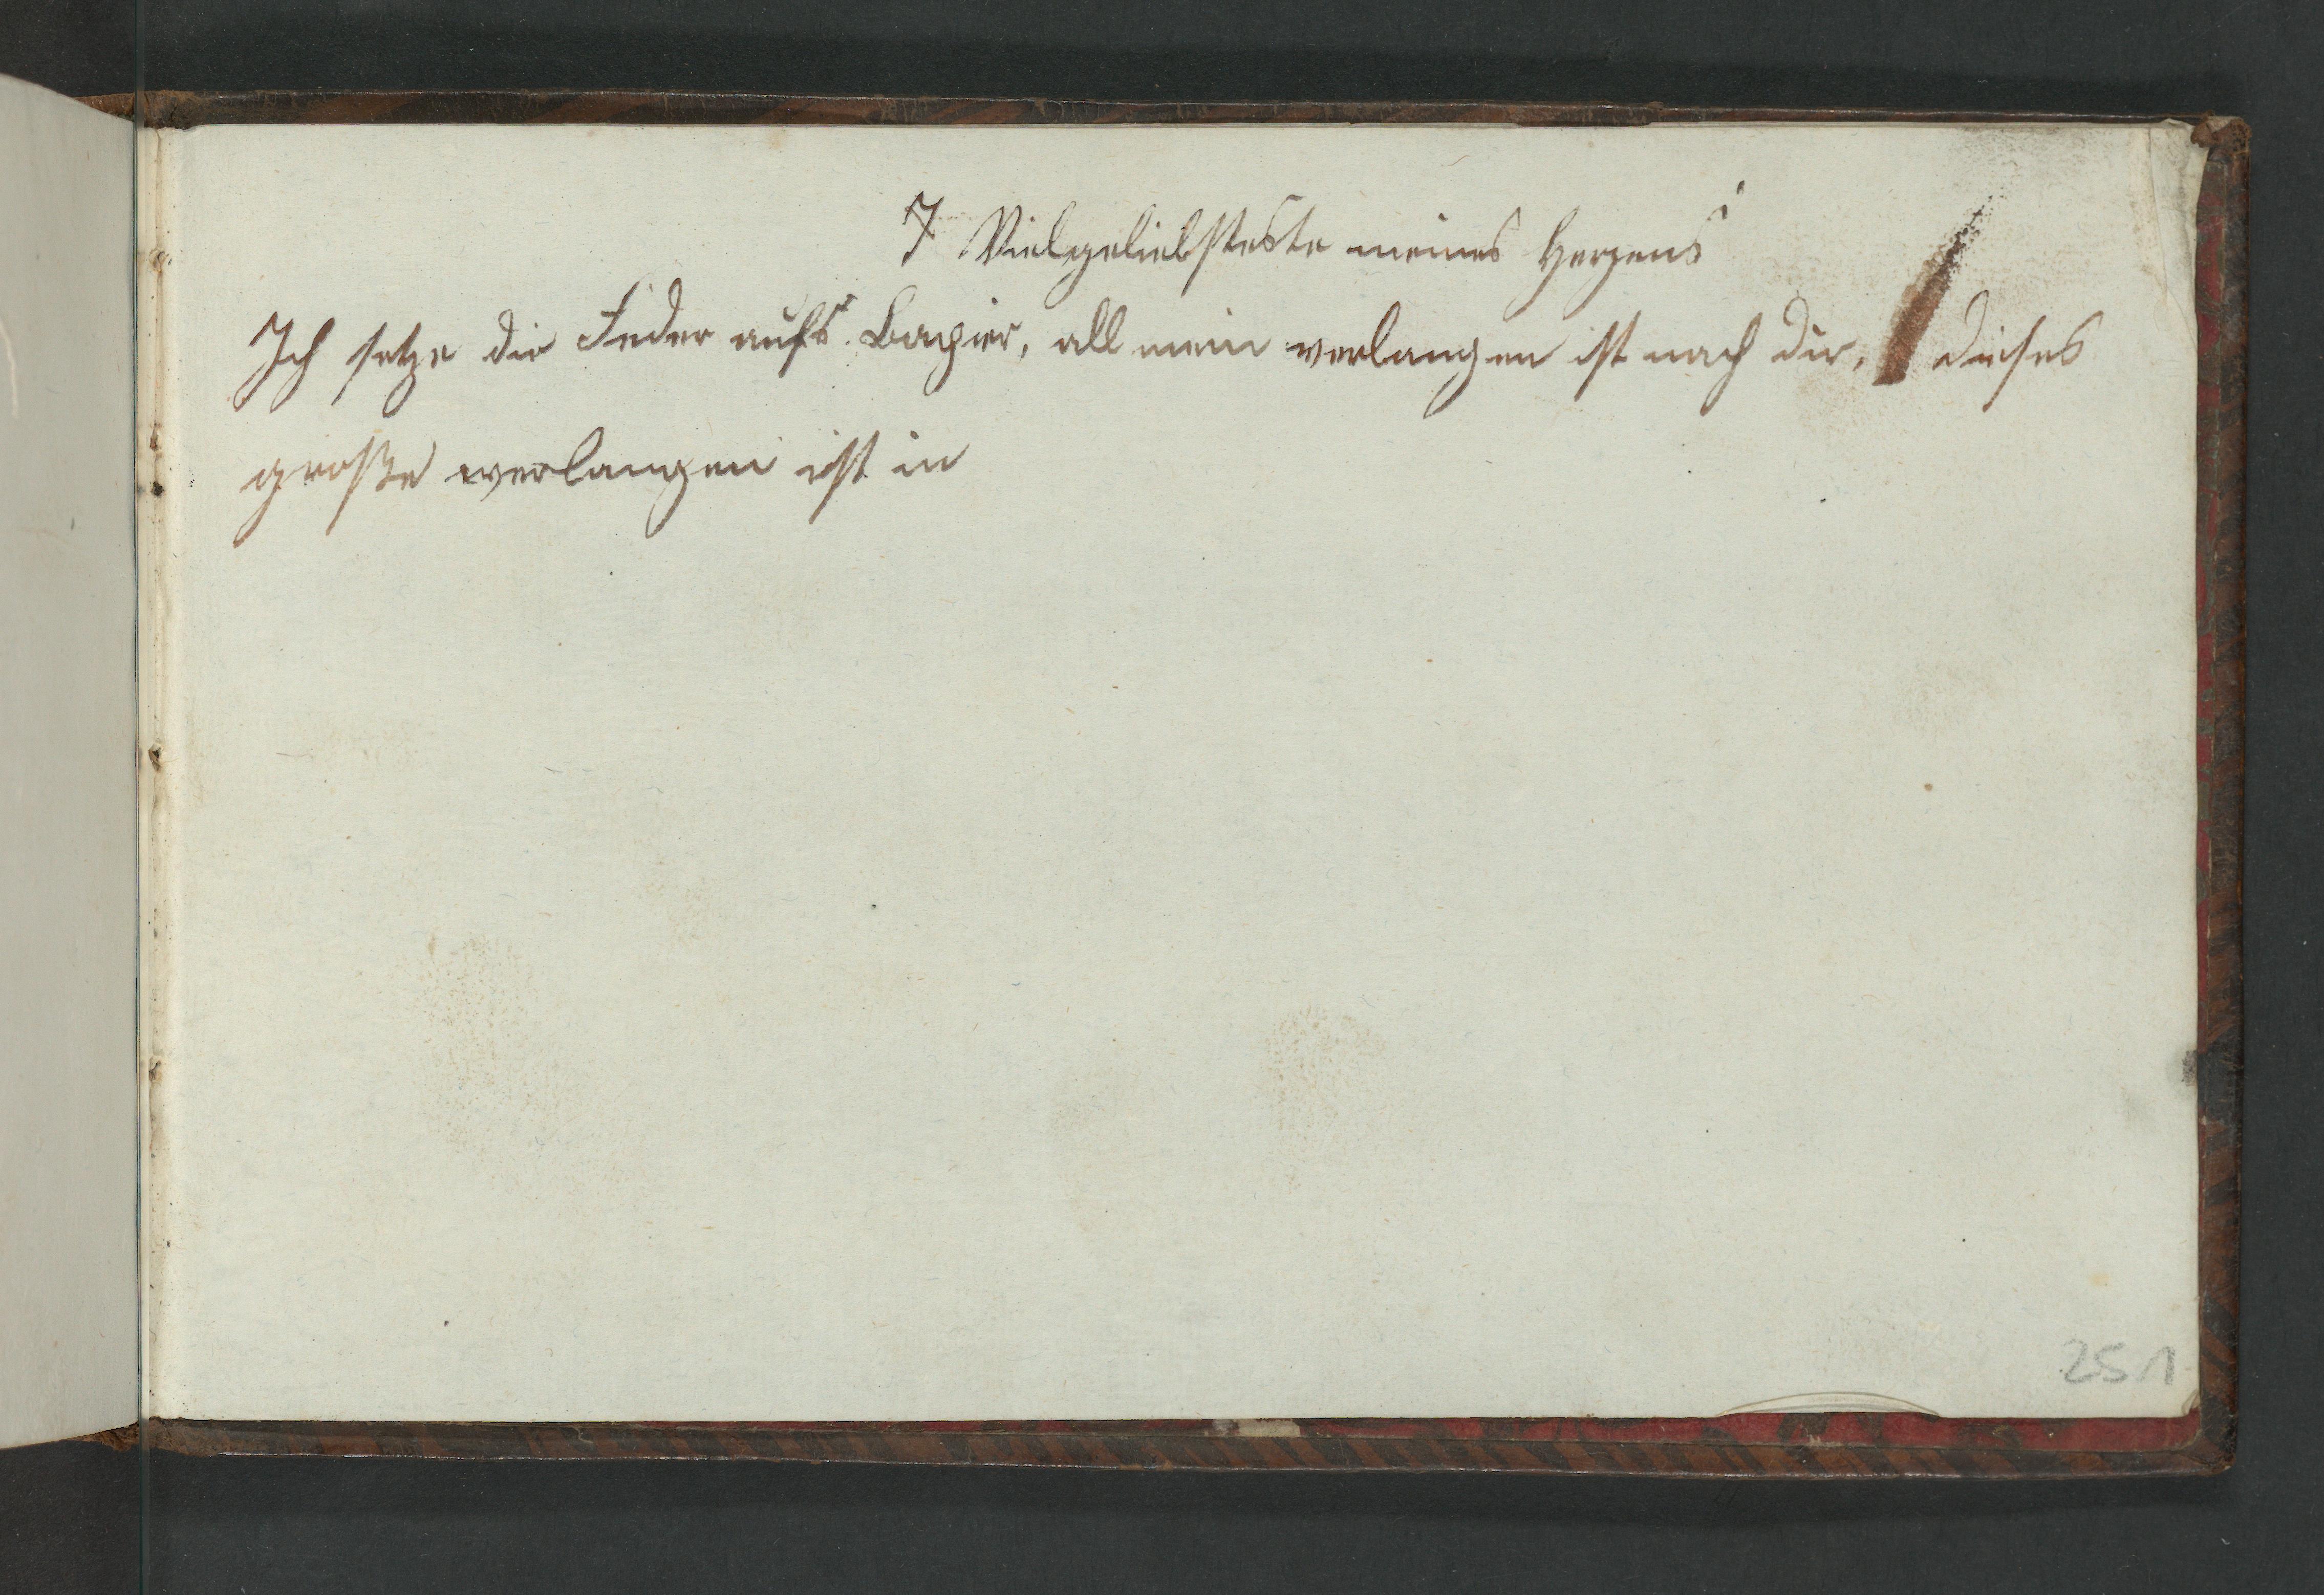 Vielgeliebsteste meines Herzens
Ich setze die Feder aufs Bapier, all mein verlangen ist nach dir, dieses
große verlangen ist in
251